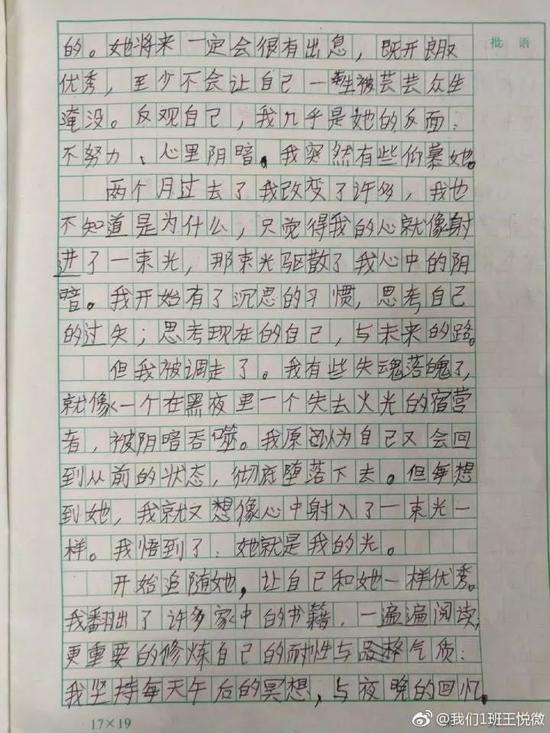 批语
的。她将来一定会很有出息，既开朗又
优秀，至少不会让自己一生被芸芸众生
淹没。反观自己，我几乎是她的反面：
不努力、心里阴暗。我突然有些仰慕她。
两个月过去了我改变了许多，我也
不知道是为什么，只觉得我的心就像射
进了一束光，那束光驱散了我心中的阴
暗。我开始有了沉思的习惯，思考自己
的过失；思考现在的自己，与未来的路。
但我被调走了。我有些失魂落魄了，
就像一个在黑夜里一个失去火光的宿营
者，被阴暗吞噬。我原以为自己又会回
到从前的状态，彻底堕落下去。但每想
到她，我就又想像心中射入了一束光一
样。我悟到了：她就是我的光。
开始追随她，让自己和她一样优秀。
我翻出了许多家中的书籍，一遍遍阅读，
更重要的修炼自己的耐性与品格气质：
我坚持每天午后的冥想，与夜晚的回忆。
17×19
@我们1班王悦微